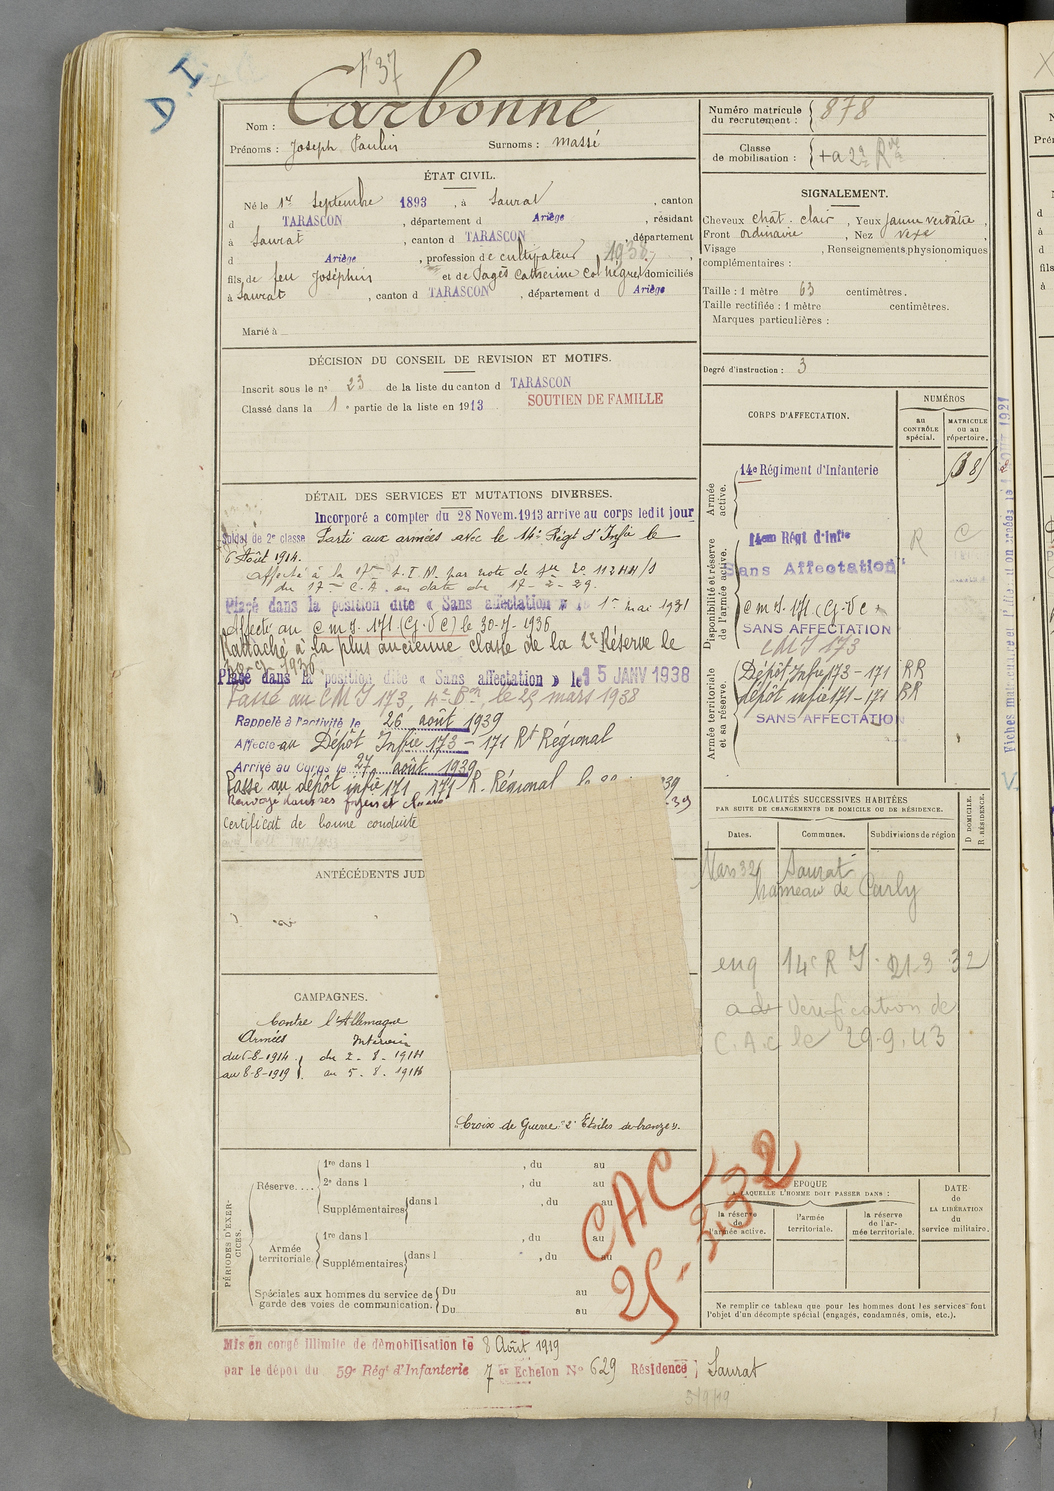 D I
F 37
Nom : Carbonne
Prénoms : Joseph Paulin Surnoms : Massé
ÉTAT CIVIL.
Né le 1er Septembre 1893, à Saurat, canton
d TARASCON, département d Ariège, résidant
à Saurat, canton d TARASCON, département
d Ariège, profession de cultivateur 1938,
fils de feu Joséphin et de Pagès Catherine domiciliés
à Saurat, canton d TARASCON, département d Ariège
Marié à
DÉCISION DU CONSEIL DE REVISION ET MOTIFS.
Inscrit sous le n° 23 de la liste du canton d TARASCON
Classé dans la 1e partie de la liste en 1913
SOUTIEN DE FAMILLE
DÉTAIL DES SERVICES ET MUTATIONS DIVERSES.
Incorporé a compter du 28 Novem. 1913 arrive au corps ledit jour
Soldat de 2e classe Parti aux armées avec le 14e Régt d'Infie le
6 Août 1914.
Affecté à la 17me S.I.M. par note de
du 17me C.A. en date du 17-2-29.
Placé dans la position dite « Sans affectation » le 1er mai 1931
Affecté au C M I. 171 (Cg. VC) le 30-7-1936
Rattaché à la plus ancienne classe de la 2e Réserve le
1936
Placé dans la position dite « Sans affectation » le 15 JANV 1938
Passé au C M I 173, 4e Bon, le 25 mars 1938
Rappelé à l'activité le 26 août 1939
Affecté au Dépôt Infie 173 - 171 Rt Régional
Arrivé au Corps le 27 août 1939
Passé au dépôt infie 171 - 171 R. Régional le 39
Renvoyé dans ses foyers et -39
Certificat de bonne conduite
ANTÉCÉDENTS JUD
CAMPAGNES.
Contre l'Allemagne
Armées Intérieur
du 6-8-1914 du 2-8-1914
au 8-8-1919 au 5-8-1914
Croix de Guerre "2 Etoiles de bronze".
PÉRIODES D'EXERCICES.
Réserve....
1re dans l , du au
2e dans l , du au
Supplémentaires dans l , du au
Armée territoriale
1re dans l , du au
Supplémentaires dans l , du au
Spéciales aux hommes du service de garde des voies de communication.
Du au
Du au
CAC
25-2-32
Mis en congé illimité de démobilisation le 8 Août 1919
par le dépôt du 59e Régt d'Infanterie 7 Echelon No 629 Résidence : Saurat
5/9/19
Numéro matricule du recrutement : 878
Classe de mobilisation : + a 2e Rve
SIGNALEMENT.
Cheveux chât. clair, Yeux jaune verdâtre,
Front ordinaire, Nez vexe,
Visage , Renseignements physionomiques
complémentaires :
Taille : 1 mètre 63 centimètres.
Taille rectifiée : 1 mètre centimètres.
Marques particulières :
Degré d'instruction : 3
CORPS D'AFFECTATION.
NUMÉROS
au CONTRÔLE spécial.
MATRICULE ou au répertoire.
Armée active.
14e Régiment d'Infanterie
Disponibilité et réserve de l'armée active.
14eme Régt d'Infie R C
Sans Affectation
C M I. 171 (Cg. VC)
SANS AFFECTATION
C M I 173
Armée territoriale et sa réserve.
Dépôt Infie 173 - 171 RR
dépôt infie 171 - 171 RR
SANS AFFECTATION
LOCALITÉS SUCCESSIVES HABITÉES
PAR SUITE DE CHANGEMENTS DE DOMICILE OU DE RÉSIDENCE.
Dates. Communes. Subdivisions de région
D DOMICILE. R RÉSIDENCE.
Mars 32 Saurat
hameau de Carly
enq 14e R I. 21-3 32
Vérification de
C.A.C le 29-9.43
EPOQUE
A LAQUELLE L'HOMME DOIT PASSER DANS :
la réserve de l'armée active.
l'armée territoriale.
la réserve de l'armée territoriale.
DATE de LA LIBÉRATION du service militaire.
Ne remplir ce tableau que pour les hommes dont les services font
l'objet d'un décompte spécial (engagés, condamnés, omis, etc.).